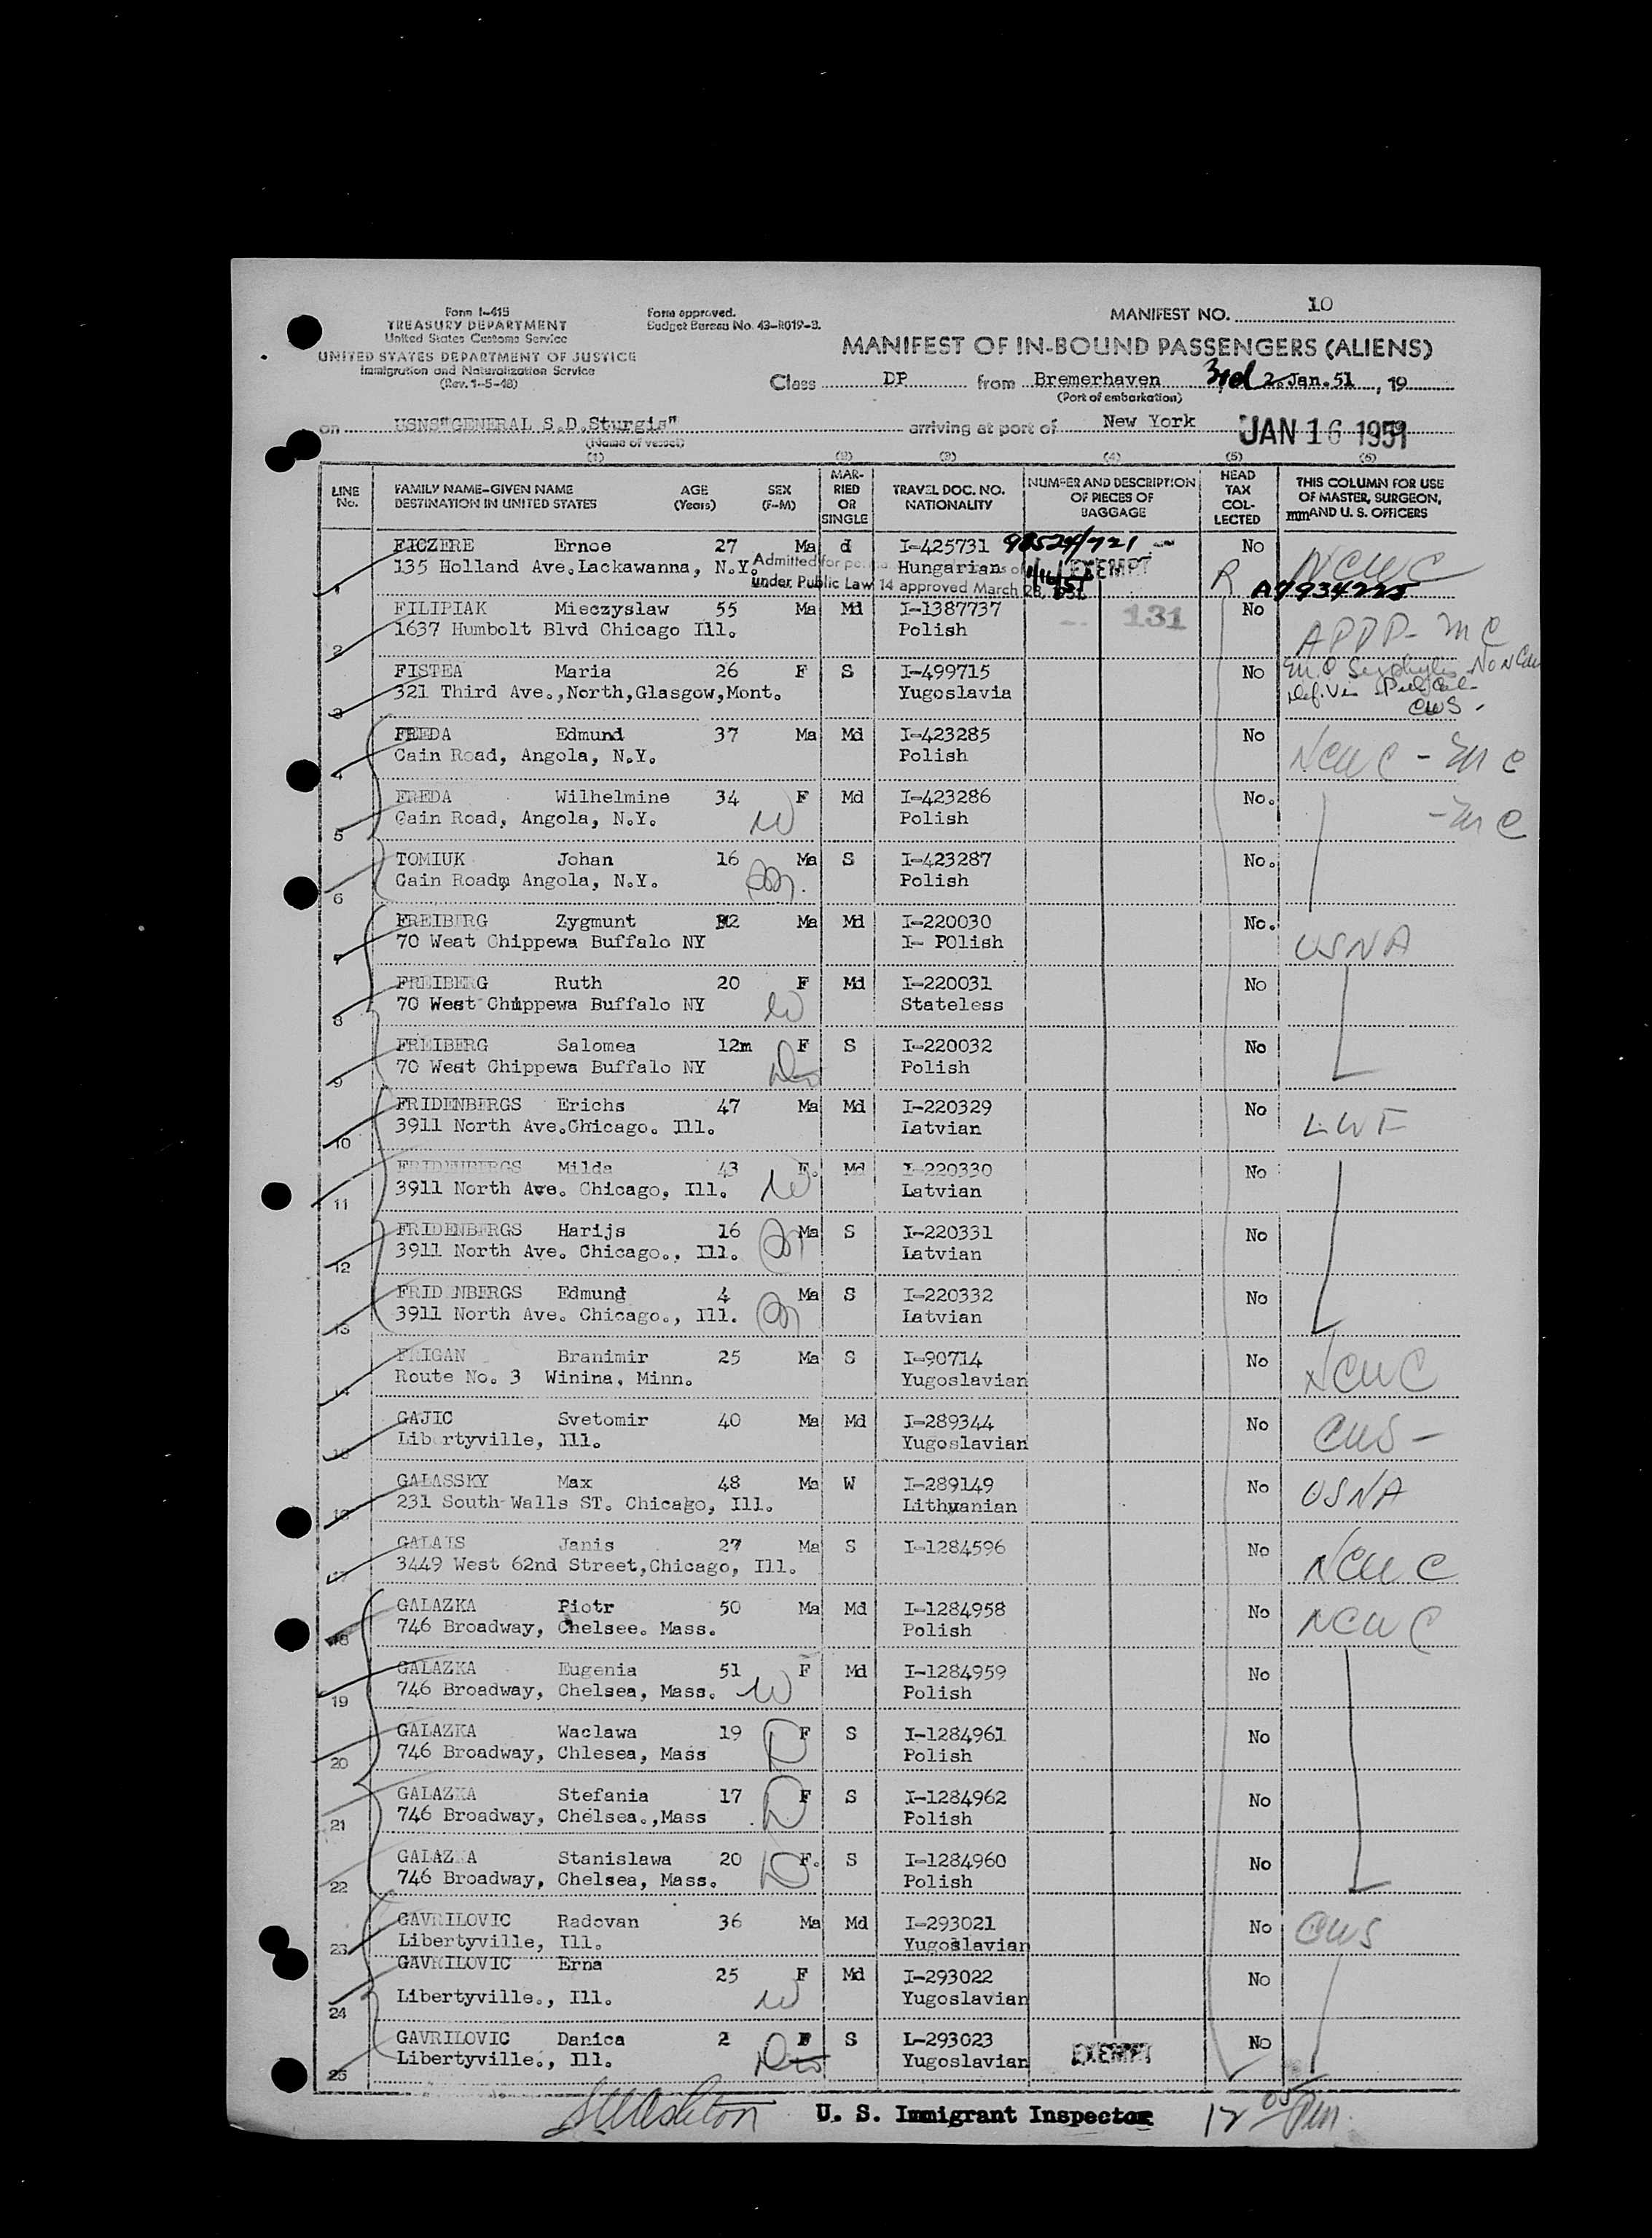 Form I-415
TREASURY DEPARTMENT
United States Customs Service
UNITED STATES DEPARTMENT OF JUSTICE
Immigration and Naturalization Service
(Rev. 1-5-48)
Form approved.
Budget Bureau No. 43-R019-3.
MANIFEST NO. 10
MANIFEST OF IN-BOUND PASSENGERS (ALIENS)
Class DP from Bremerhaven 3rd 2.Jan.51, 19
(Port of embarkation)
on USNS"GENERAL S.D.Sturgis" arriving at port of New York JAN 16 1951
(Name of vessel)
(1) (2) (3) (4) (5) (6)
LINE No. FAMILY NAME-GIVEN NAME DESTINATION IN UNITED STATES AGE (Years) SEX (F-M) MARRIED OR SINGLE TRAVEL DOC. NO. NATIONALITY NUMBER AND DESCRIPTION OF PIECES OF BAGGAGE HEAD TAX COLLECTED THIS COLUMN FOR USE OF MASTER, SURGEON, AND U. S. OFFICERS
1 FICZERE Ernoe 27 Ma d I-425731 98524/721 No NCWC
135 Holland Ave.Lackawanna, N.Y. Hungarian EXEMPT R A7934225
Admitted for
under Public Law 14 approved March 28,
2 FILIPIAK Mieczyslaw 55 Ma Md I-1387737 131 No
1637 Humbolt Blvd Chicago Ill. Polish APDP - MC
3 FISTEA Maria 26 F S I-499715 No
321 Third Ave.,North,Glasgow,Mont. Yugoslavia
CWS
4 FREDA Edmund 37 Ma Md I-423285 No
Cain Road, Angola, N.Y. Polish NCWC - MC
5 FREDA Wilhelmine 34 F Md I-423286 No.
Cain Road, Angola, N.Y. W Polish - MC
6 TOMIUK Johan 16 Ma S I-423287 No.
Cain Roadm Angola, N.Y. Polish
7 FREIBERG Zygmunt 32 Ma Md I-220030 No.
70 Weat Chippewa Buffalo NY I- POlish USNA
8 FREIBERG Ruth 20 F Md I-220031 No
70 West Chippewa Buffalo NY W Stateless
9 FREIBERG Salomea 12m F S I-220032 No
70 West Chippewa Buffalo NY Polish
10 FRIDENBERGS Erichs 47 Ma Md I-220329 No
3911 North Ave.Chicago. Ill. Latvian LWF
11 FRIDENBERGS Milda 43 F. Md I-220330 No
3911 North Ave. Chicago, Ill. W Latvian
12 FRIDENBERGS Harijs 16 Ma S I-220331 No
3911 North Ave. Chicago., Ill. Latvian
13 FRIDENBERGS Edmund 4 Ma S I-220332 No
3911 North Ave. Chicago., Ill. Latvian
14 FRIGAN Branimir 25 Ma S I-90714 No
Route No. 3 Winina, Minn. Yugoslavian NCWC
15 GAJIC Svetomir 40 Ma Md I-289344 No CWS -
Libertyville, Ill. Yugoslavian
16 GALASSKY Max 48 Ma W I-289149 No USNA
231 South Walls ST. Chicago, Ill. Lithuanian
17 GALAIS Janis 27 Ma S I-1284596 No
3449 West 62nd Street,Chicago, Ill. NCWC
18 GALAZKA Piotr 50 Ma Md I-1284958 No
746 Broadway, Chelsee. Mass. Polish NCWC
19 GALAZKA Eugenia 51 F Md I-1284959 No
746 Broadway, Chelsea, Mass. W Polish
20 GALAZKA Waclawa 19 F S I-1284961 No
746 Broadway, Chlesea, Mass D Polish
21 GALAZKA Stefania 17 F S I-1284962 No
746 Broadway, Chelsea.,Mass D Polish
22 GALAZKA Stanislawa 20 F. S I-1284960 No
746 Broadway, Chelsea, Mass. D Polish
23 GAVRILOVIC Radovan 36 Ma Md I-293021 No CWS
Libertyville, Ill. Yugoslavian
24 GAVRILOVIC Erna 25 F Md I-293022 No
Libertyville., Ill. W Yugoslavian
25 GAVRILOVIC Danica 2 F S L-293023 No
Libertyville., Ill. Yugoslavian EXEMPT
U. S. Immigrant Inspector 12 05 Pm